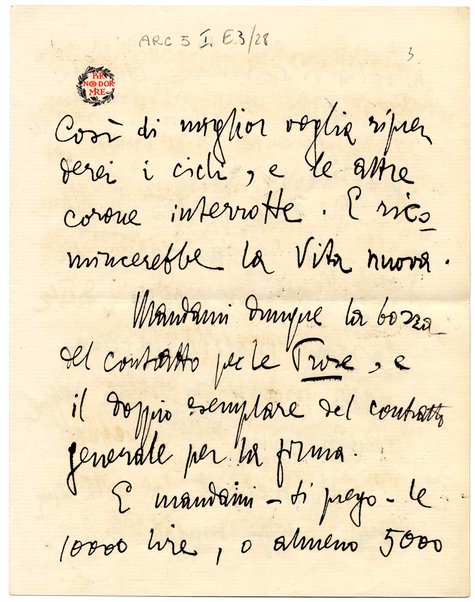 ARC 5 I. E.3/28
3
PER
NON DOR
MIRE
Così di miglior voglia ripren
derei i cicli, e le altre
corone interrotte. E rico
mincerebbe la Vita nuova.
Mandami dunque la bozza
del contratto per le Prose, e
il doppio esemplare del contratto
generale per la firma.
E mandami - ti prego - le
10000 lire, o almeno 5000